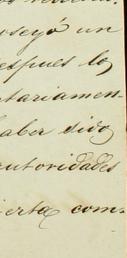 seyó un
espues lo
tariamen-
aber sido
autoridades
ierta com-